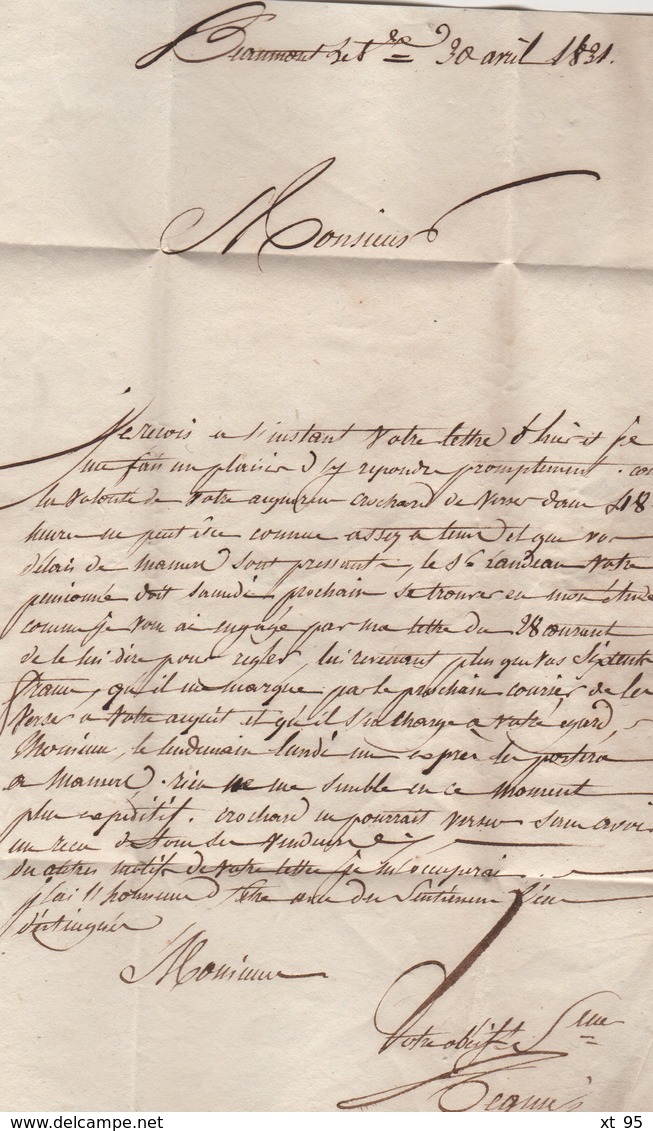 Beaumont le 30 avril 1831.
Monsieur
Je reçois a l'instant Votre lettre d'hier et je
me fais un plaisir d'y repondre promptement.
la Volonté de Votre acquereur crochard de Verser dans 48
heure ne peut être connue assez a tems et que vos
délais de mamers sont pressants, le Sr Landeau Votre
pensionné doit samedi prochain se trouver en mon étude
comme je vous ai engagé par ma lettre du 28 courant
de le lui dire pour regler, lui revenant plus que vos Sixcents
francs, qu'il me marque par le prochain courier de les
Verser a Votre acquit et qu'il s'en charge a Votre egard,
Monsieur, le lendemain lundi un exprès les portera
a Mamers. rien ne me semble en ce moment
plus expeditif. crochard ne pourrait verser sans avoir
un recu de tous les Vendeurs
du autres motifs de Votre lettre je m'occuperai.
j'ai l'honneur d'être avec des Sentiments
distingués
Monsieur
Votre obéisst
xt 95
Delcampe.net